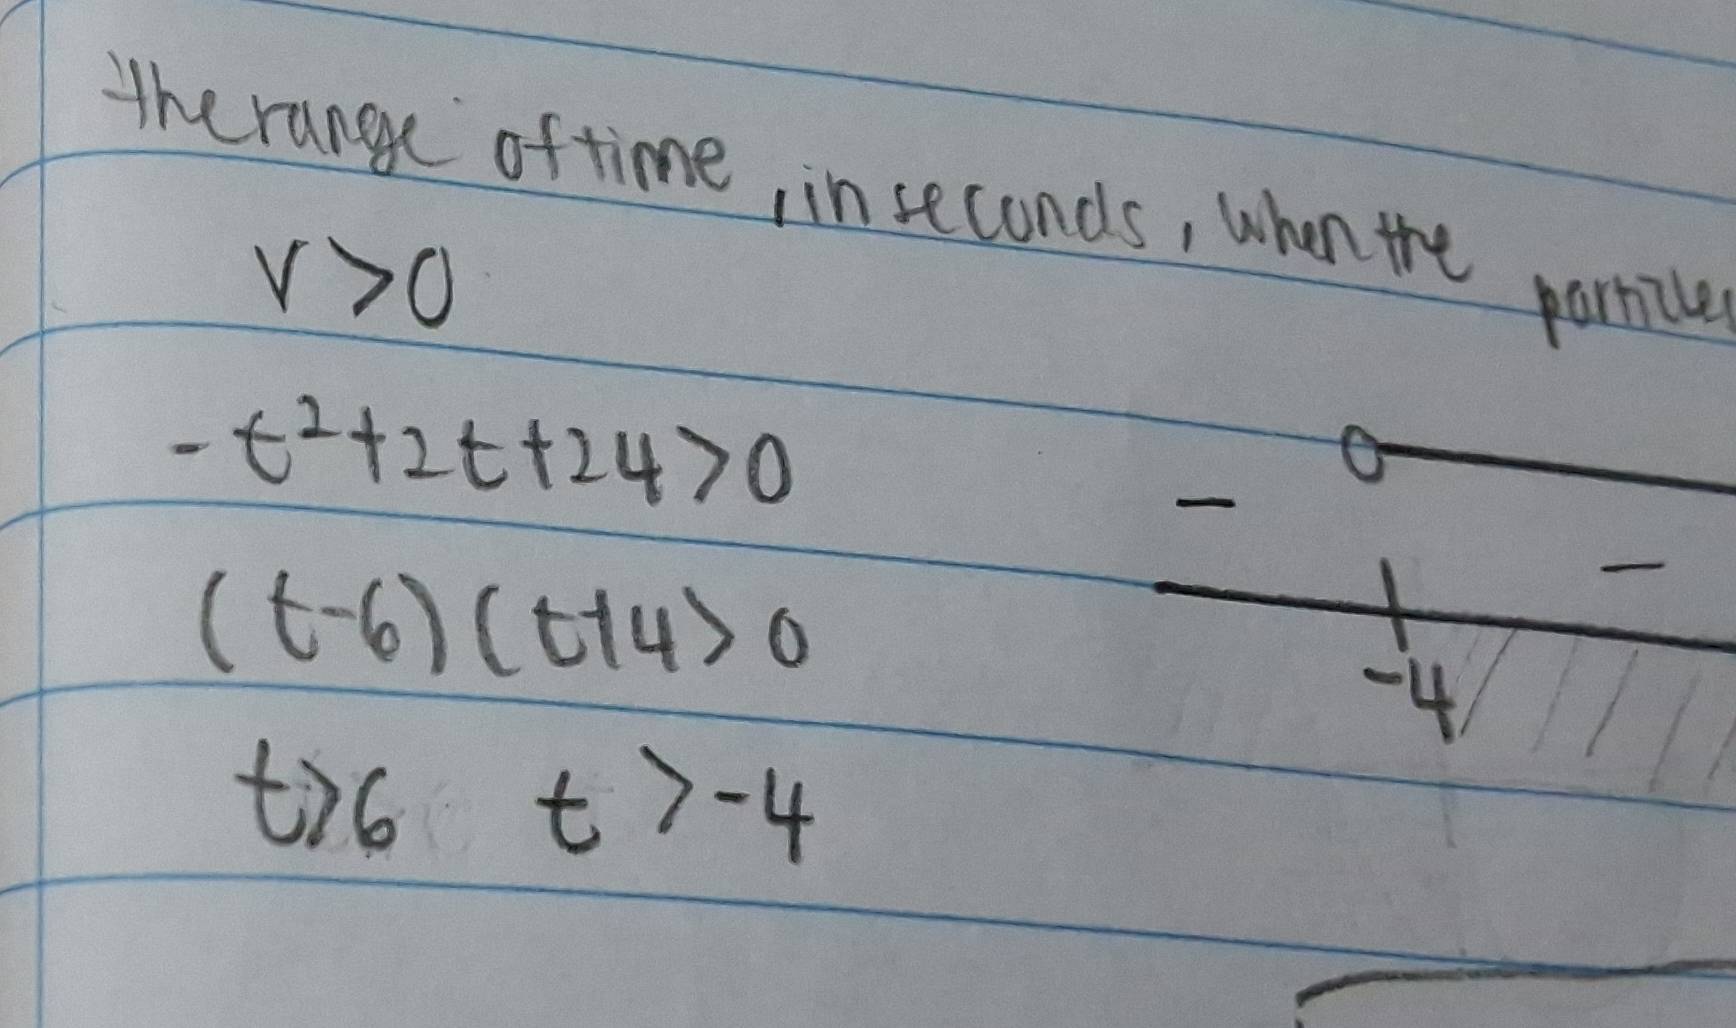 the range of time, in seconds, when the particle
v>0
-t²+2t+24>0
(t-6)(t+4>0
t>6 t>-4
-
-
-4